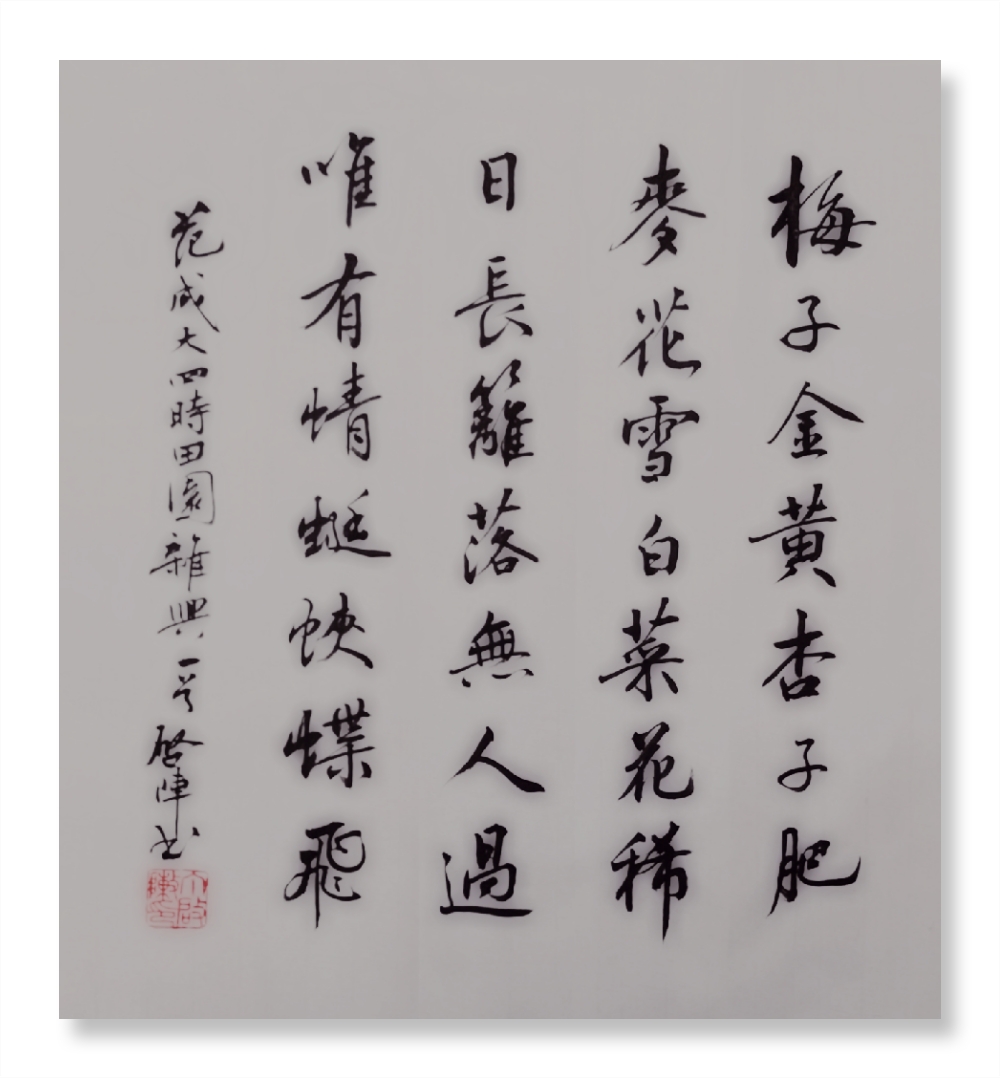 梅子金黄杏子肥
麥花雪白菜花稀
日長籬落無人過
唯有蜻蜓蛺蝶飛
范成大四時田園雜興一首 啓陣书